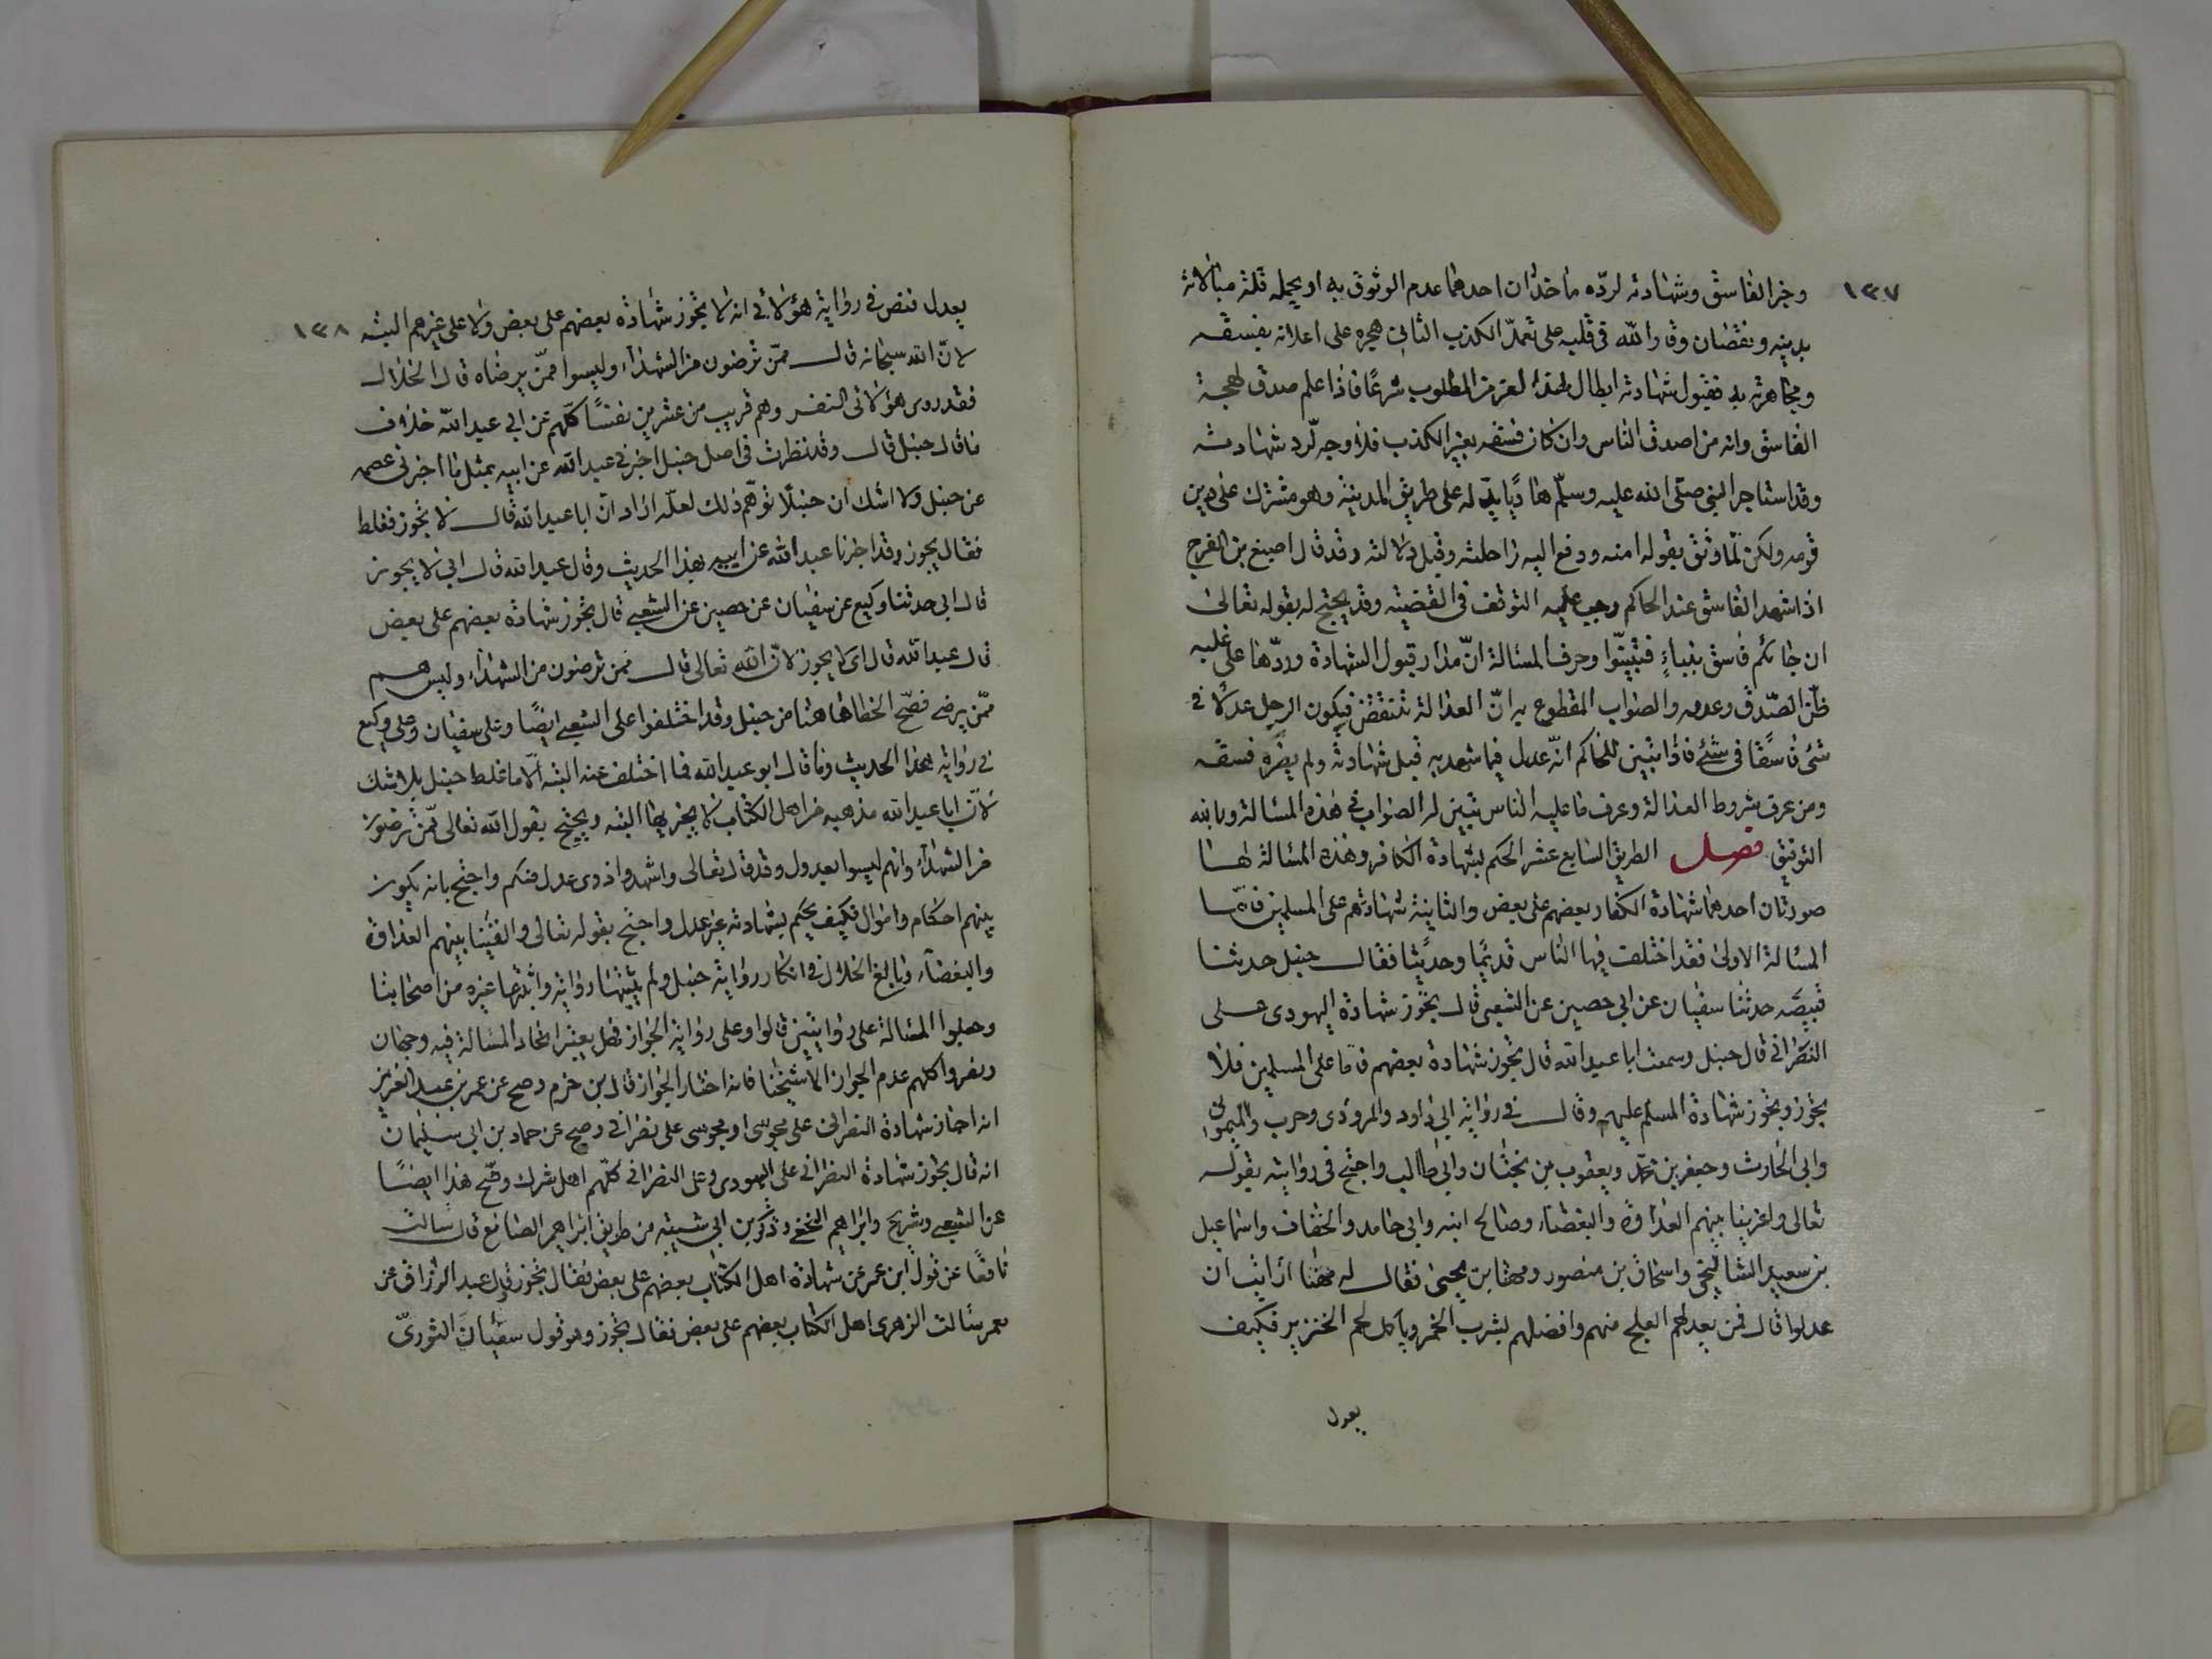 ١٣٧
وخبر الفاسق وشهادته لرده ماخذان احدهما عدم الوثوق به او يحمله قلة مبالاته
بدينه ونقصان وقار الله في قلبه على تعمد الكذب الثاني هجره على اعلانه بفسقه
ومجاهرته به فقبول شهادته ابطال لهذا الغرض المطلوب شرعًا فاذا علم صدق لهجة
الفاسق وانه من اصدق الناس وان كان فسقه بغير الكذب فلا وجه لرد شهادته
وقد استاجر النبي صلى الله عليه وسلم هاديًا يدله على طريق المدينة وهو مشرك على دين
قومه ولكن لما وثق بقوله امنه ودفع اليه راحلته وقبل دلالته وقد قال اصبغ بن الفرج
اذا شهد الفاسق عند الحاكم وجب عليه التوقف في القضية وقد يحتج له بقوله تعالى
ان جائكم فاسق بنباءٍ فتبينوا وحرف المسئالة انّ مدار قبول الشهادة وردّها على غلبه
ظنّ الصّدق وعدمه والصواب المقطوع به انّ العدالة تتبعض فيكون الرجل عدلا في
شئ فاسقًا في شئ فاذا تبين للحاكم انّه عدل فيما شهد به قبل شهادته ولم يضره فسقه
ومن عرف شروط العدالة وعرف ما عليه الناس تبين له الصواب في هذه المسئالة وبالله
التوفيق فصل الطريق السابع عشر الحكم بشهادة الكافر وهذه المسئالة لها
صورتان احدهما شهادة الكفار بعضهم على بعض والثانية شهادتهم على المسلمين فامّا
المسئالة الاولى فقد اختلف فيها الناس قديمًا وحديثًا فقال حنبل حدثنا
قبيصه حدثنا سفيان عن ابي حصين عن الشعبي قال يجوز شهادة اليهودى على
النصراني قال حنبل وسمعت ابا عبد الله قال تجوز شهادة بعضهم فاما على المسلمين فلا
يجوز وتجوز شهادة المسلم عليهم وقال في رواية ابي داود والمروذى وحرب والميموني
وابى الحارث وجعفر بن محمد ويعقوب بن بختان وابى طالب واحتج في روايته بقوله
تعالى واغرينا بينهم العداوة والبغضاء وصالح ابنه وابي حامد والخفاف واسماعيل
بن سعيد الشالنجي واسحاق بن منصور ومهنا بن يحيى فقال له مهنا ارايت ان
عدلوا قال فمن يعدلهم العلج منهم وافضلهم يشرب الخمر وياكل لحم الخنزير فكيف
يعدل
١٣٨
يعدل فنص في رواية هؤلاء في انه لا تجوز شهادة بعضهم على بعض ولا على غيرهم البته
لانّ الله سبحانه قال ممّن ترضون من الشهداء وليسوا ممّن يرضاه قال الخلال
فقد روى هؤلائى النفر وهم قريب من عشرين نفسًا كلّهم عن ابي عبد الله خلاف
ما قال حنبل قال وقد نظرت في اصل حنبل اخبرني عبد الله عن ابيه بمثل ما اخبرني عصمه
عن حنبل ولا اشك ان حنبلًا توهّم ذلك لعلّه اراد انّ ابا عبد الله قال لا تجوز فغلط
فقال يجوز وقد اخبرنا عبد الله عن ابيه بهذا الحديث وقال عبد الله قال ابي لا يجوز
قال ابي حدثنا وكيع عن سفيان عن حصين عن الشعبي قال تجوز شهادة بعضهم على بعض
قال عبد الله قال ابي لا يجوز لانّ الله تعالى قال ممن ترضون من الشهداء وليس هم
ممّن يرضى فصّح الخطا هاهنا من حنبل وقد اختلفوا على الشعبي ايضًا وعلى سفيان وعلى وكيع
في رواية هذا الحديث وما قال ابو عبد الله فما اختلف عنه البتة الّا ما غلط حنبل بلا شك
لانّ ابا عبد الله مذهبه في اهل الكتاب لا يجيزها البتة ويحتج بقول الله تعالى ممّن ترضون
من الشهداء وانهم ليسوا بعدول وقد قال تعالى واشهدوا ذوى عدل منكم واحتج بانه يكون
بينهم احكام واموال فكيف يحكم بشهادته غير عدل واحتج بقوله تعالى والقينا بينهم العداوة
والبغضاء وبالغ الخلال في انكار رواية حنبل ولم يثبتها رواية واثبتها غيره من اصحابنا
وجعلوا المسئالة على روايتين قالوا وعلى رواية الجواز فهل يعتبر اتحاد المسالة فيه وجهان
ونصروا كلهم عدم الجواز الا شيخنا فانه اختار الجواز قال بن حزم وصح عن عمر بن عبد العزيز
انه اجاز شهادة النصراني على مجوسى او مجوسى على نصراني وصح عن حماد بن ابي سليمان
انه قال تجوز شهادة النصراني على اليهودى وعلى النصراني كلّهم اهل شرك وصّح هذا ايضًا
عن الشعبي وشريح وابراهيم النخعي وذكر بن ابي شيبة من طريق ابراهيم الصايغ قال سالت
نافعًا عن قول ابن عمر عن شهادة اهل الكتاب بعضهم على بعض فقال تجوز قال عبد الرزاق عن
معمر سئالت الزهرى اهل الكتاب بعضهم على بعض فقال تجوز وهو قول سفيان الثورىّ